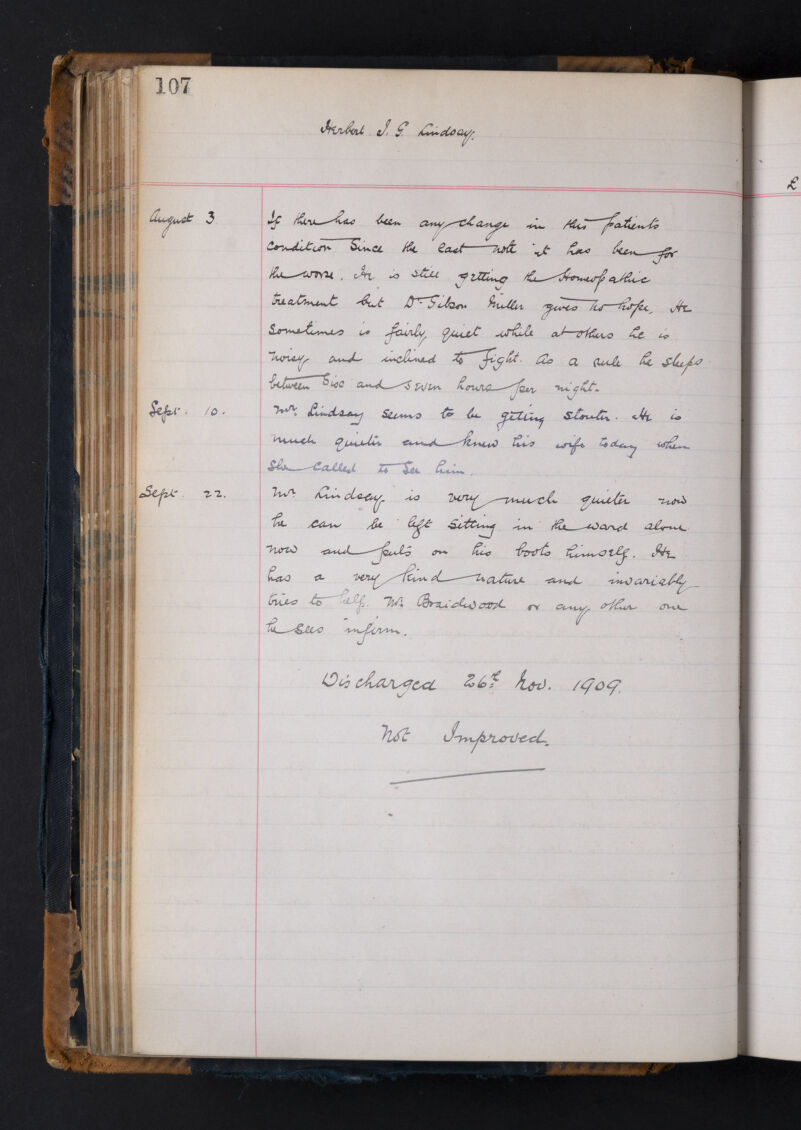 107
Herbert J. G. Lindsay.
August 3 If there has been any change in this patients
condition since the last note it has been for
the worse. He is still getting the Homeopathic
treatment but Dr. Gibson Miller gives no hope. He
sometimes is fairly quiet while at others he is
noisy and inclined to fight. As a rule he sleeps
between six and seven hours per night.
Sept. 10. Mr. Lindsay seems to be geting stouter. He is
much quieter and knew his wife today when
she called to see him.
Sept. 22. Mr Lindsay is very much quieter now
he can be left sitting in the ward alone
now and puts on his boots himself. He
has a very kind nature and invariably
tries to help Mr. Braidwood or any other one
he sees infirm.
Discharged 26th Nov. 1909.
Not Improved.
£